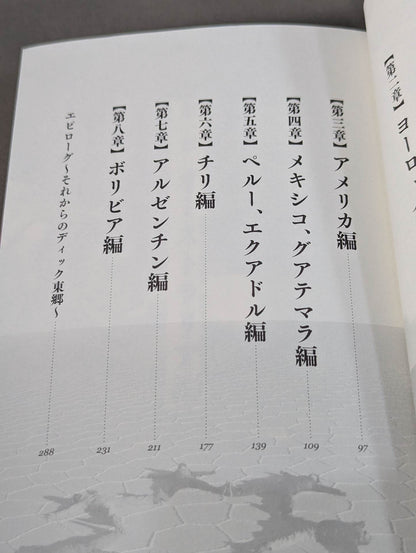 【第二章】ヨーロ
【第三章】アメリカ編 97
【第四章】メキシコ、グアテマラ編 109
【第五章】ペルー、エクアドル編 139
【第六章】チリ編 177
【第七章】アルゼンチン編 211
【第八章】ボリビア編 231
エピローグ〜それからのディック東郷〜 288